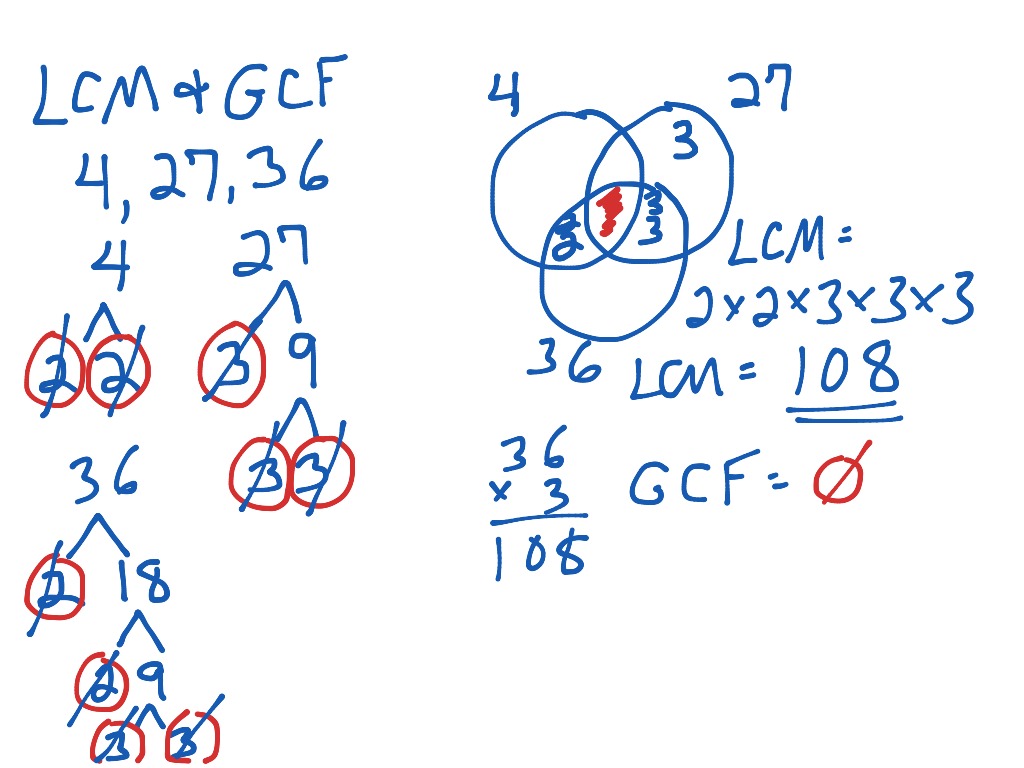 LCM & GCF
4, 27, 36
4
2 2
27
3 9
3 3
36
2 18
2 9
3 3
4 27
3
2 2 3 3
36
LCM =
2 × 2 × 3 × 3 × 3
LCM = 108
36
× 3
108
GCF = Ø